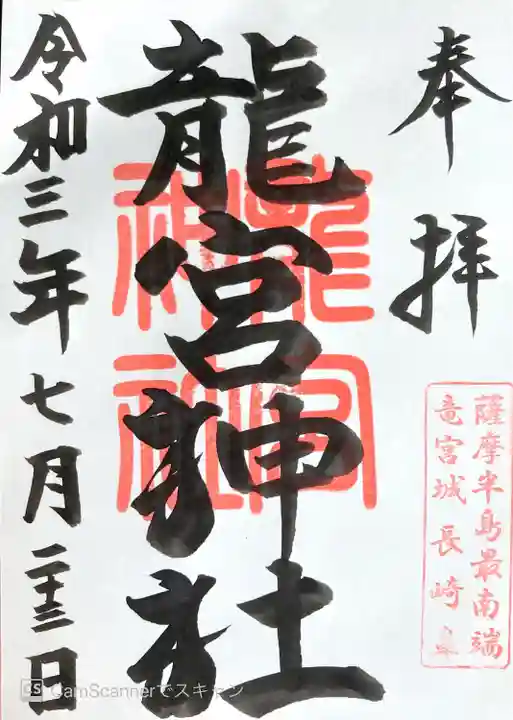 奉拝
薩摩半島最南端
竜宮城 長崎鼻
龍宮神社
龍宮
神社
令和三年七月二十三日
CS CamScannerでスキャン